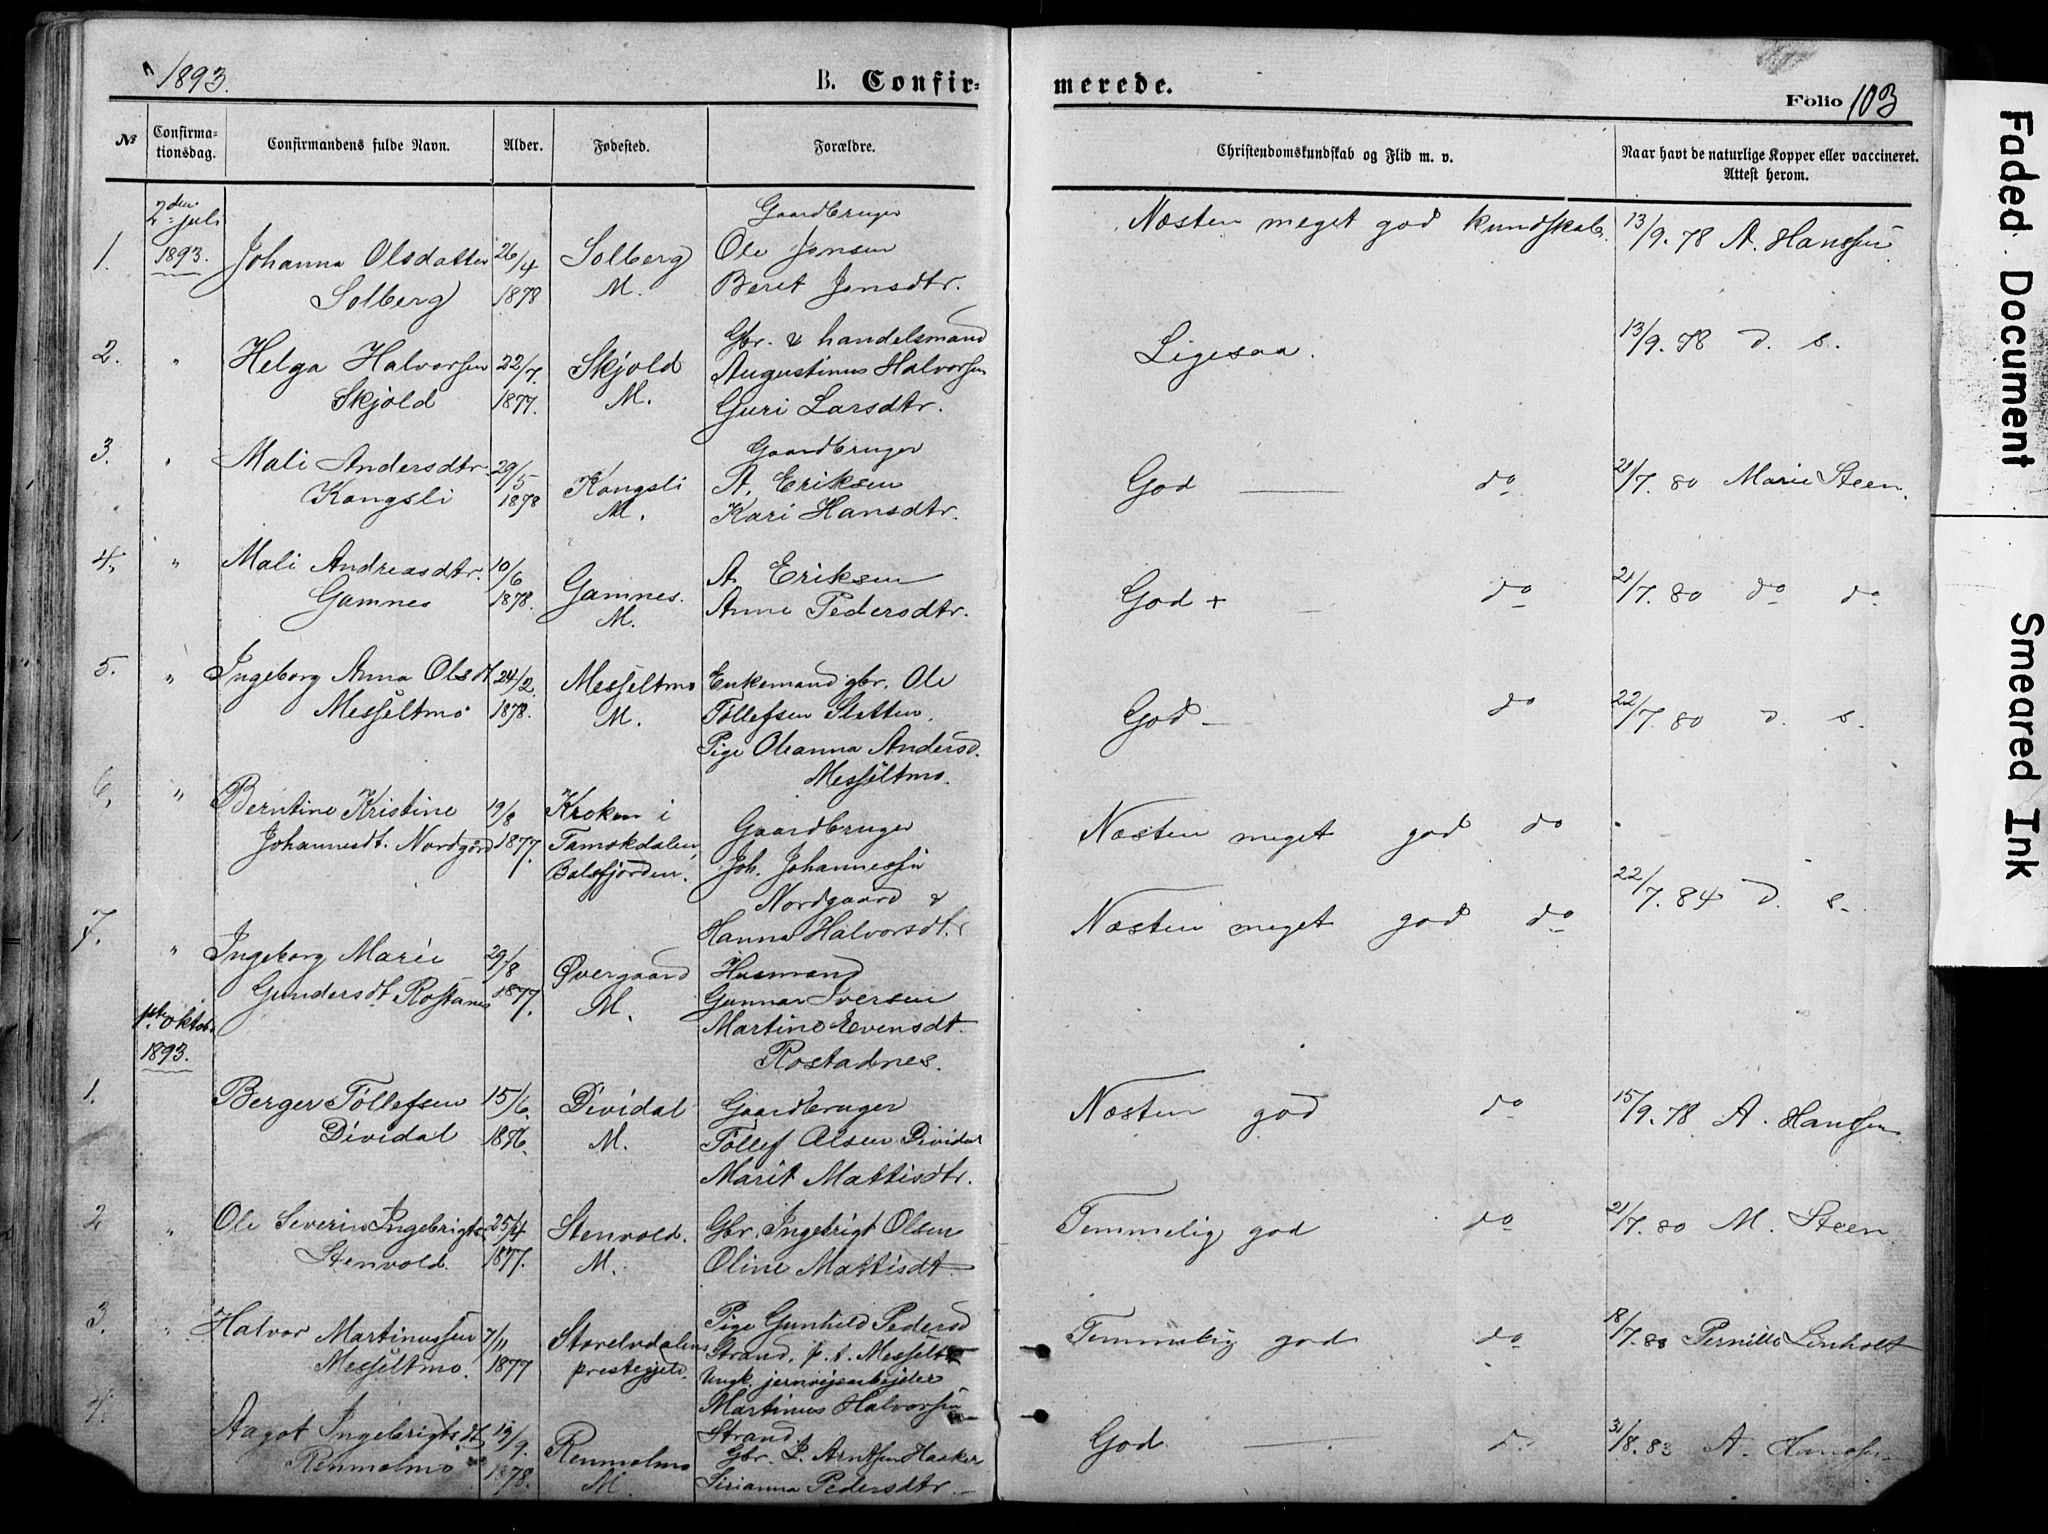 1893.
B. Confir-
merede.
Folio 103
№
Confirma-
tionsdag.
Confirmandens fulde Navn.
Alder.
Fødested.
Forældre.
Christendomskundskab og Flid m. v.
Naar havt de naturlige Kopper eller vaccineret.
Attest herom.
2den juli
1893.
1.
Johanna Olsdatter
Solberg
26/4
1878
Solberg
M.
Gaardbruger
Ole Jonsen
Beret Jonsdtr.
Næsten meget god kundskab.
13/9. 78 A. Hanssen
2.
"
Helga Halvorsen
Skjold
22/7.
1877.
Skjold
M.
Gbr. & handelsmand
Augustinus Halvorsen
Guri Larsdtr.
Ligesaa.
13/9. 78 d. s.
3.
"
Mali Andersdtr.
Kongsli
29/5
1878
Kongsli
M.
Gaardbruger
A. Eriksen
Kari Hansdtr.
God — do
21/7. 80 Marie Steen.
4.
"
Mali Andreasdtr.
Gamnes
10/6
1878.
Gamnes.
M.
A. Eriksen
Anne Pedersdtr.
God + — do
21/7. 80 do do
5.
"
Ingeborg Anna Olsdt
Messeltmo
24/2.
1878.
Messeltmo
M.
Enkemand gbr. Ole
Tollefsen Sletten.
Pige Oleanna Andersd.
Messeltmo.
God — do
22/7. 80 d. s.
6.
"
Berntine Kristine
Johannesdt. Nordgård
19/8
1877.
Kroken i
Tamokdalen,
Balsfjorden.
Gaardbruger
Joh. Johannessen
Nordgaard &
Hanna Halvorsdt.
Næsten meget god do
22/7. 84 d. s.
7.
"
Ingeborg Marie
Gundersdt. Rostanes
29/8
1877.
Øvergaard
M.
Husmand
Gunnar Iversen
Martine Evensdt.
Rostadnes.
Næsten meget god do
1ste oktob.
1893.
1.
Berger Tollefsen
Dividal
15/6.
1876.
Dividal
M.
Gaardbruger
Tollef Olsen Dividal
Marit Mattisdtr.
Næsten god do
15/9. 78 A. Hanssen
2
"
Ole Severin Ingebrigts.
Stenvold.
25/4
1877.
Stenvold.
M.
Gbr. Ingebrigt Olsen
Oline Mattisdt.
Temmelig god do
21/7. 80 M. Steen
3.
"
Halvor Martinussen
Messeltmo.
7/11
1877
Storelvdalens
prestegjeld.
Pige Gunhild Pedersd
Strand, p. t. Messeltmo
Ungk. jernvejsarbejder
Martinus Halvorsen
Strand
Temmelig god do
18/7. 80 Pernille Linholt
4.
Aagot Ingebrigtsdt
Renmolmo
19/9.
1878.
Renmolmo
M.
Gbr. I. Arntsen Haaker
Sirianna Pedersdtr.
God. — do
31/8. 83 A. Hanssen
Faded Document
Smeared Ink